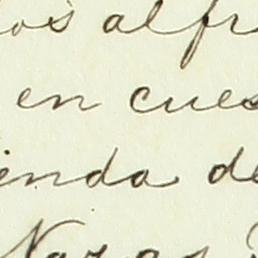 os alfr
en cues
ienda de
Nazas